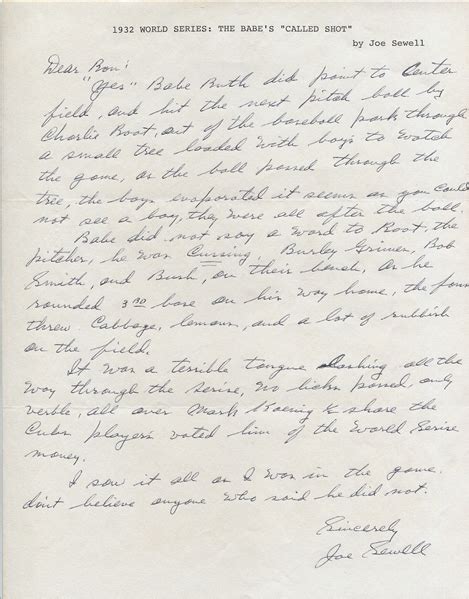 1932 WORLD SERIES: THE BABE'S "CALLED SHOT"
by Joe Sewell
Dear Ron:
"Yes" Babe Ruth did point to Center
field, and hit the next pitch ball by
Charlie Root, out of the baseball park through
a small tree loaded with boys to watch
the game, as the ball passed through the
tree, the boys evaporated it seems as you could
not see a boy, they were all after the ball.
Babe did not say a word to Root, the
pitcher, he was Cussing, Burley Grimes, Bob
Smith, and Bush, on their bench, as he
rounded 3RD base on his way home, the fans
threw Cabbage, lemons, and a lot of rubbish
on the field.
It was a terrible tongue lashing all the
way through the serise, no licks passed, only
verble, all over Mark Koenig's share the
Cubs players voted him of the World Serise
money.
I saw it all as I was in the game.
don't believe anyone who said he did not.
Sincerely
Joe Sewell